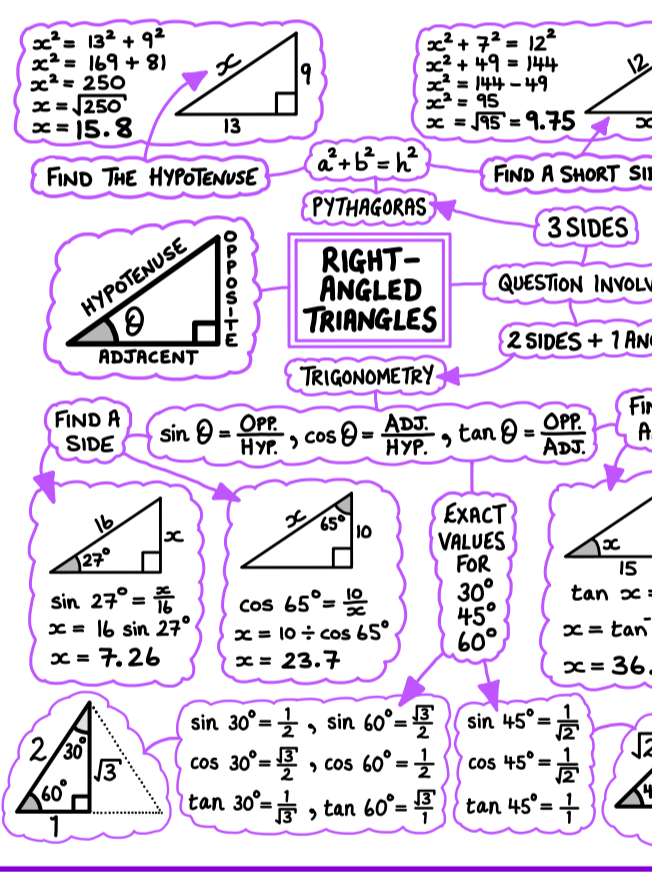 x² = 13² + 9²
x² = 169 + 81
x² = 250
x = √250
x = 15.8
x
9
13
x² + 7² = 12²
x² + 49 = 144
x² = 144 - 49
x² = 95
x = √95 = 9.75
12
x
FIND THE HYPOTENUSE
a² + b² = h²
FIND A SHORT SI
PYTHAGORAS
3 SIDES
HYPOTENUSE
OPPOSITE
θ
ADJACENT
RIGHT-
ANGLED
TRIANGLES
QUESTION INVOLV
2 SIDES + 1 AN
TRIGONOMETRY
FIND A
SIDE
sin θ = OPP./HYP. , cos θ = ADJ./HYP. , tan θ = OPP./ADJ.
FI
A
16
x
27°
sin 27° = x/16
x = 16 sin 27°
x = 7.26
x
65°
10
cos 65° = 10/x
x = 10 ÷ cos 65°
x = 23.7
EXACT
VALUES
FOR
30°
45°
60°
x
15
tan x =
x = tan⁻
x = 36.
2
30°
√3
60°
1
sin 30° = 1/2 , sin 60° = √3/2
cos 30° = √3/2 , cos 60° = 1/2
tan 30° = 1/√3 , tan 60° = √3/1
sin 45° = 1/√2
cos 45° = 1/√2
tan 45° = 1/1
√2
4